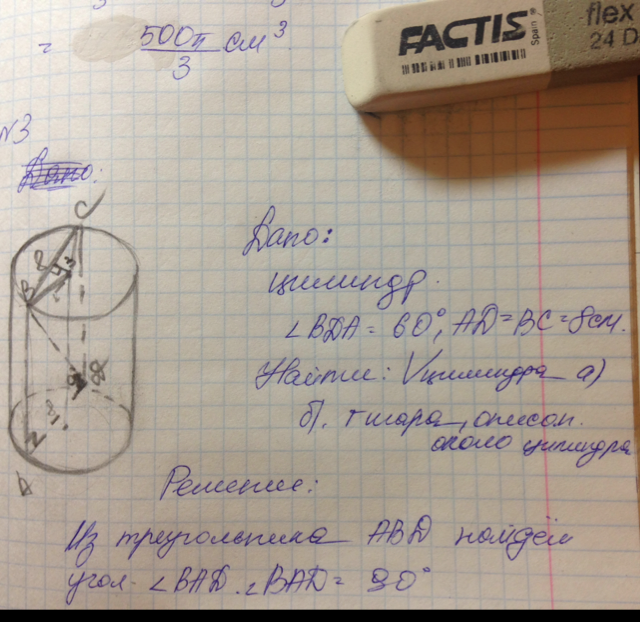 = 500π см³
3
FACTIS
Spain
flex
24 D
N3
Дано:
C
8
B
A
Дано:
цилиндр.
∠BDA = 60°, AD=BC=8см.
Найти: Vцилиндра а)
б). r шара, описан.
около цилиндра
Решение:
Из треугольника ABD найдём
угол ∠BAD. ∠BAD = 90°